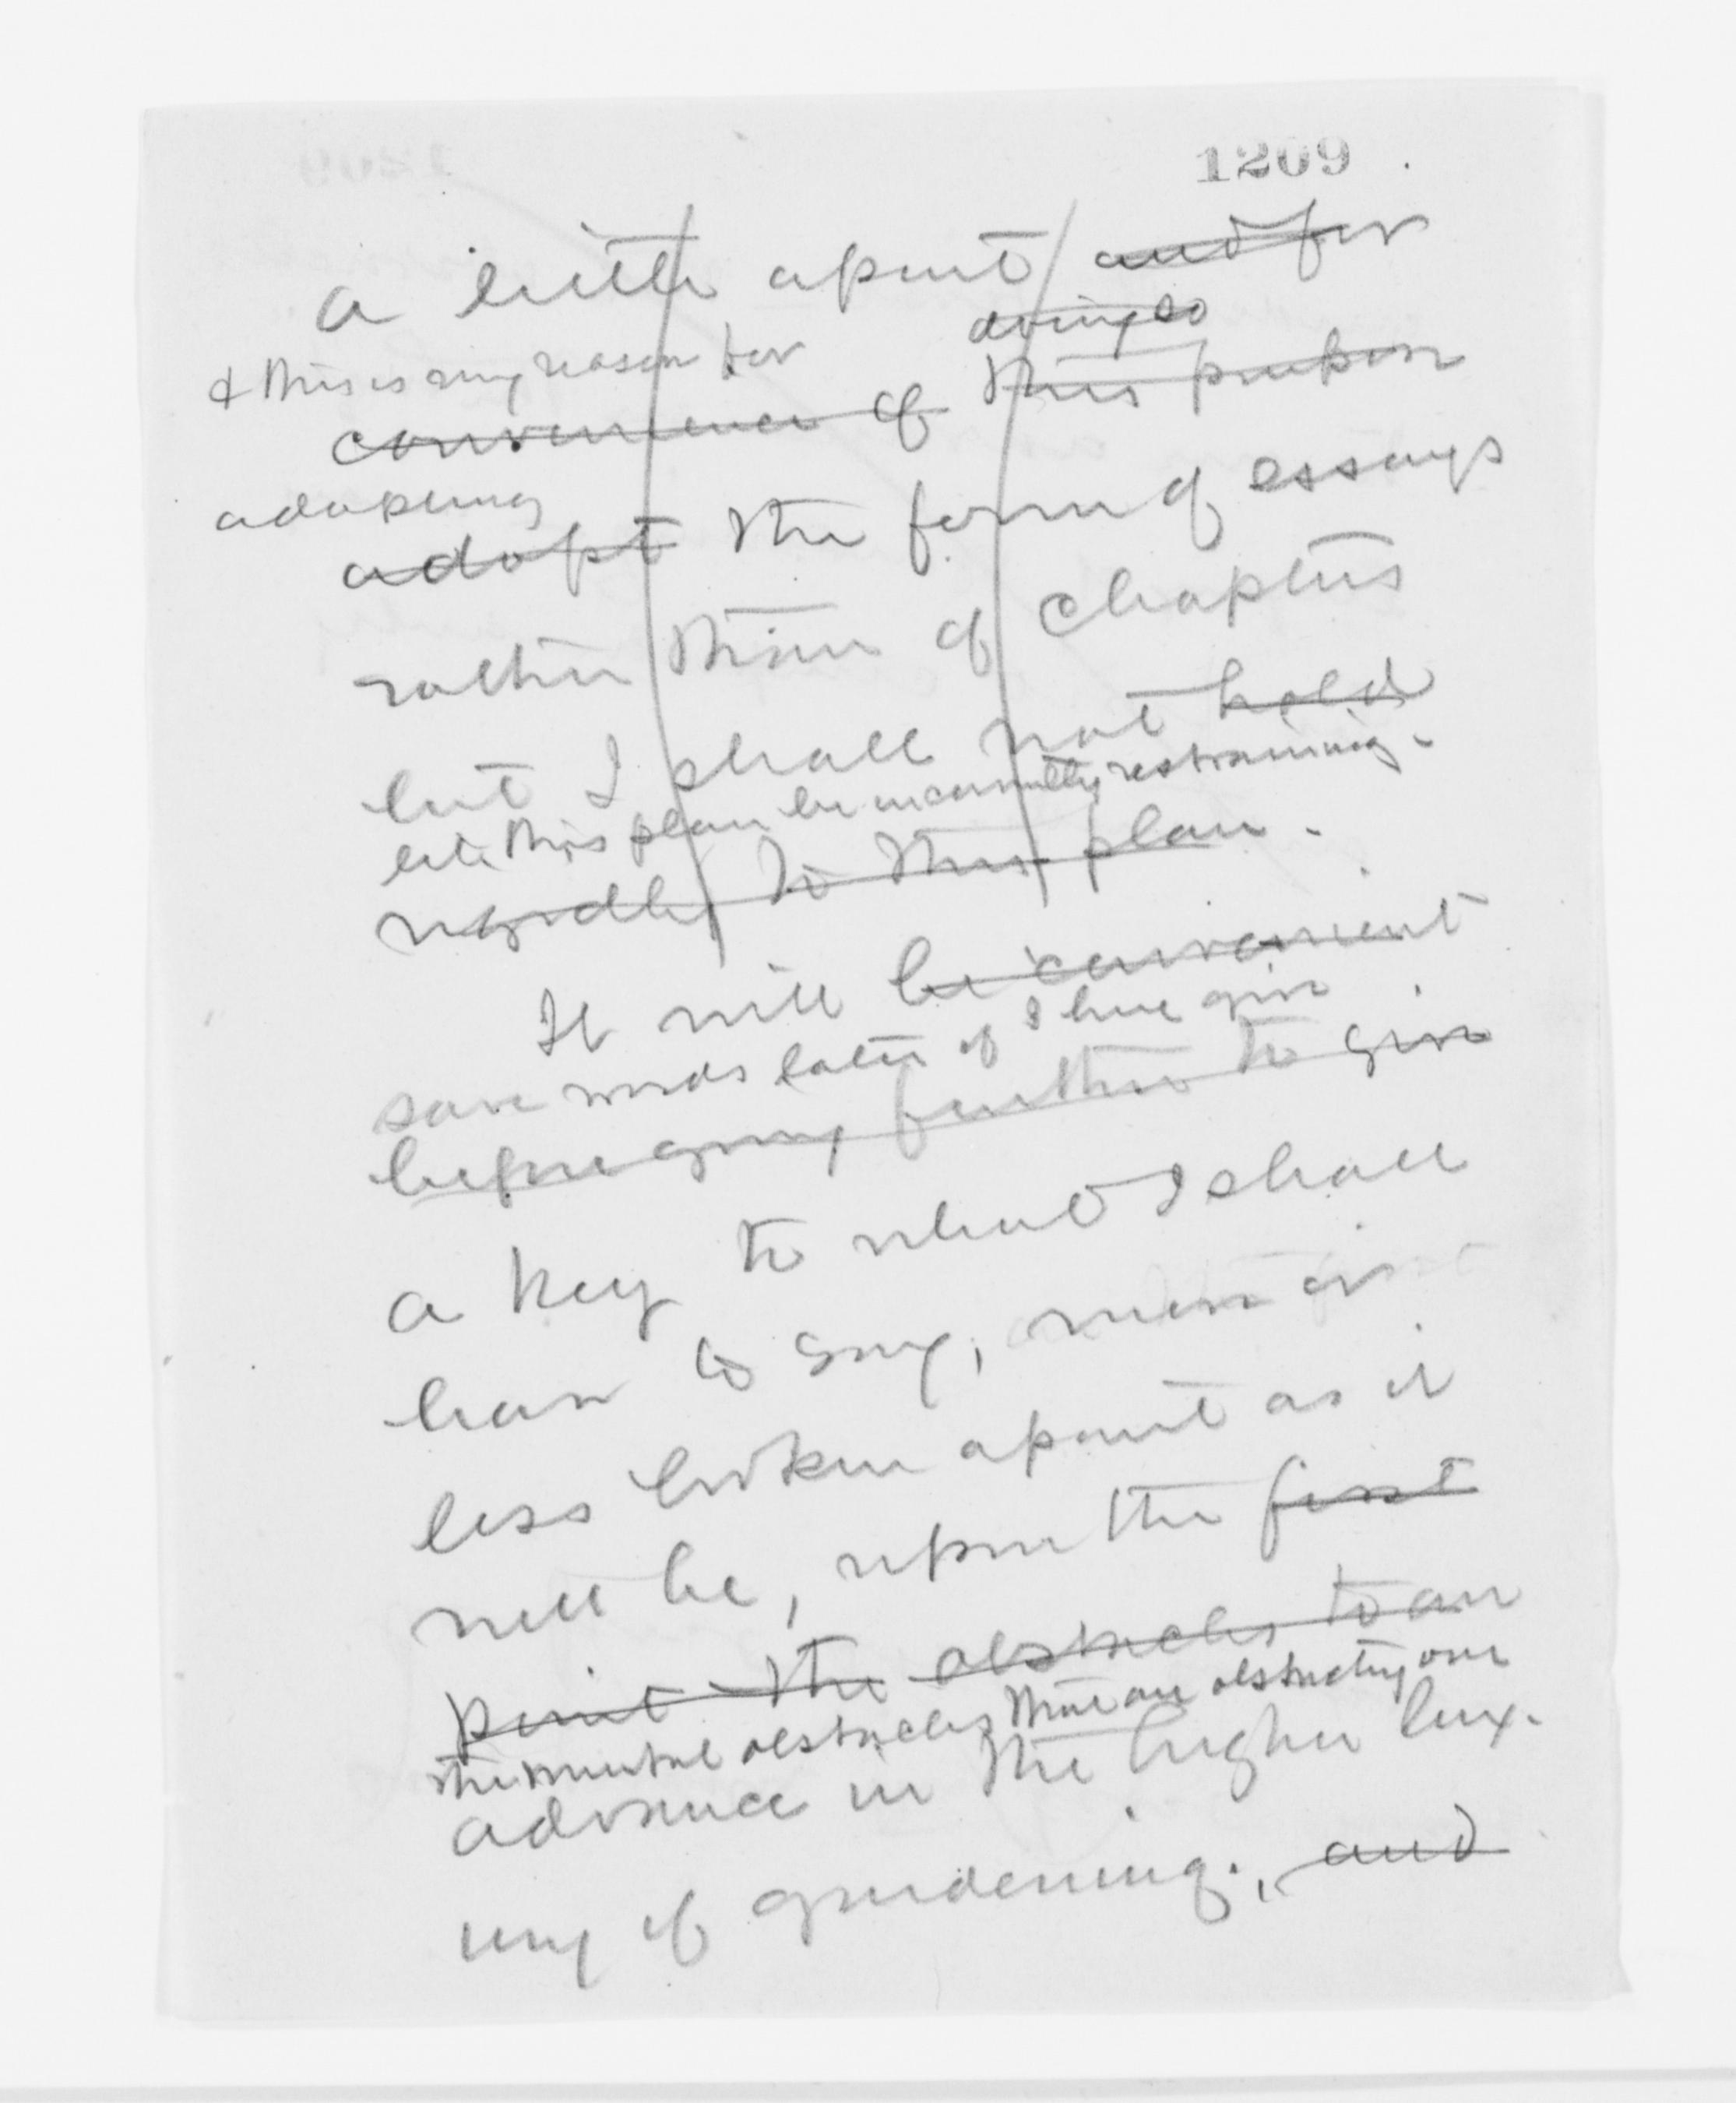 1209
a little apart and for
doing so
& this is my reason for
convenience of this purpose
adopting
adopt the form of essays
rather than of chapters
but I shall not hold
let this plan be inconveniently restraining.
rigidly to this plan.
It will be convenient
save words later if I here give
before going further to give
a key to what I shall
have to say, more or
less broken apart as it
will be, upon the first
point the obstacles to an
the mental obstacles that are obstructing our
advance in the higher lux-
ury of gardening., and